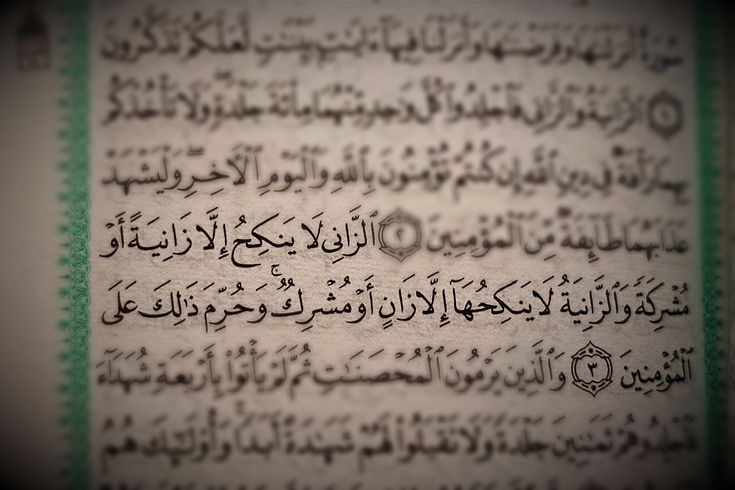 سُورَةٌ أَنزَلْنَٰهَا وَفَرَضْنَٰهَا وَأَنزَلْنَا فِيهَآ ءَايَٰتٍۭ بَيِّنَٰتٍ لَّعَلَّكُمْ تَذَكَّرُونَ
١ ٱلزَّانِيَةُ وَٱلزَّانِى فَٱجْلِدُوا۟ كُلَّ وَٰحِدٍ مِّنْهُمَا مِا۟ئَةَ جَلْدَةٍ وَلَا تَأْخُذْكُم
بِهِمَا رَأْفَةٌ فِى دِينِ ٱللَّهِ إِن كُنتُمْ تُؤْمِنُونَ بِٱللَّهِ وَٱلْيَوْمِ ٱلْءَاخِرِ وَلْيَشْهَدْ
عَذَابَهُمَا طَآئِفَةٌ مِّنَ ٱلْمُؤْمِنِينَ ٢ ٱلزَّانِى لَا يَنكِحُ إِلَّا زَانِيَةً أَوْ
مُشْرِكَةً وَٱلزَّانِيَةُ لَا يَنكِحُهَآ إِلَّا زَانٍ أَوْ مُشْرِكٌ ۚ وَحُرِّمَ ذَٰلِكَ عَلَى
ٱلْمُؤْمِنِينَ ٣ وَٱلَّذِينَ يَرْمُونَ ٱلْمُحْصَنَٰتِ ثُمَّ لَمْ يَأْتُوا۟ بِأَرْبَعَةِ شُهَدَآءَ
فَٱجْلِدُوهُمْ ثَمَٰنِينَ جَلْدَةً وَلَا تَقْبَلُوا۟ لَهُمْ شَهَٰدَةً أَبَدًا ۚ وَأُو۟لَٰٓئِكَ هُمُ